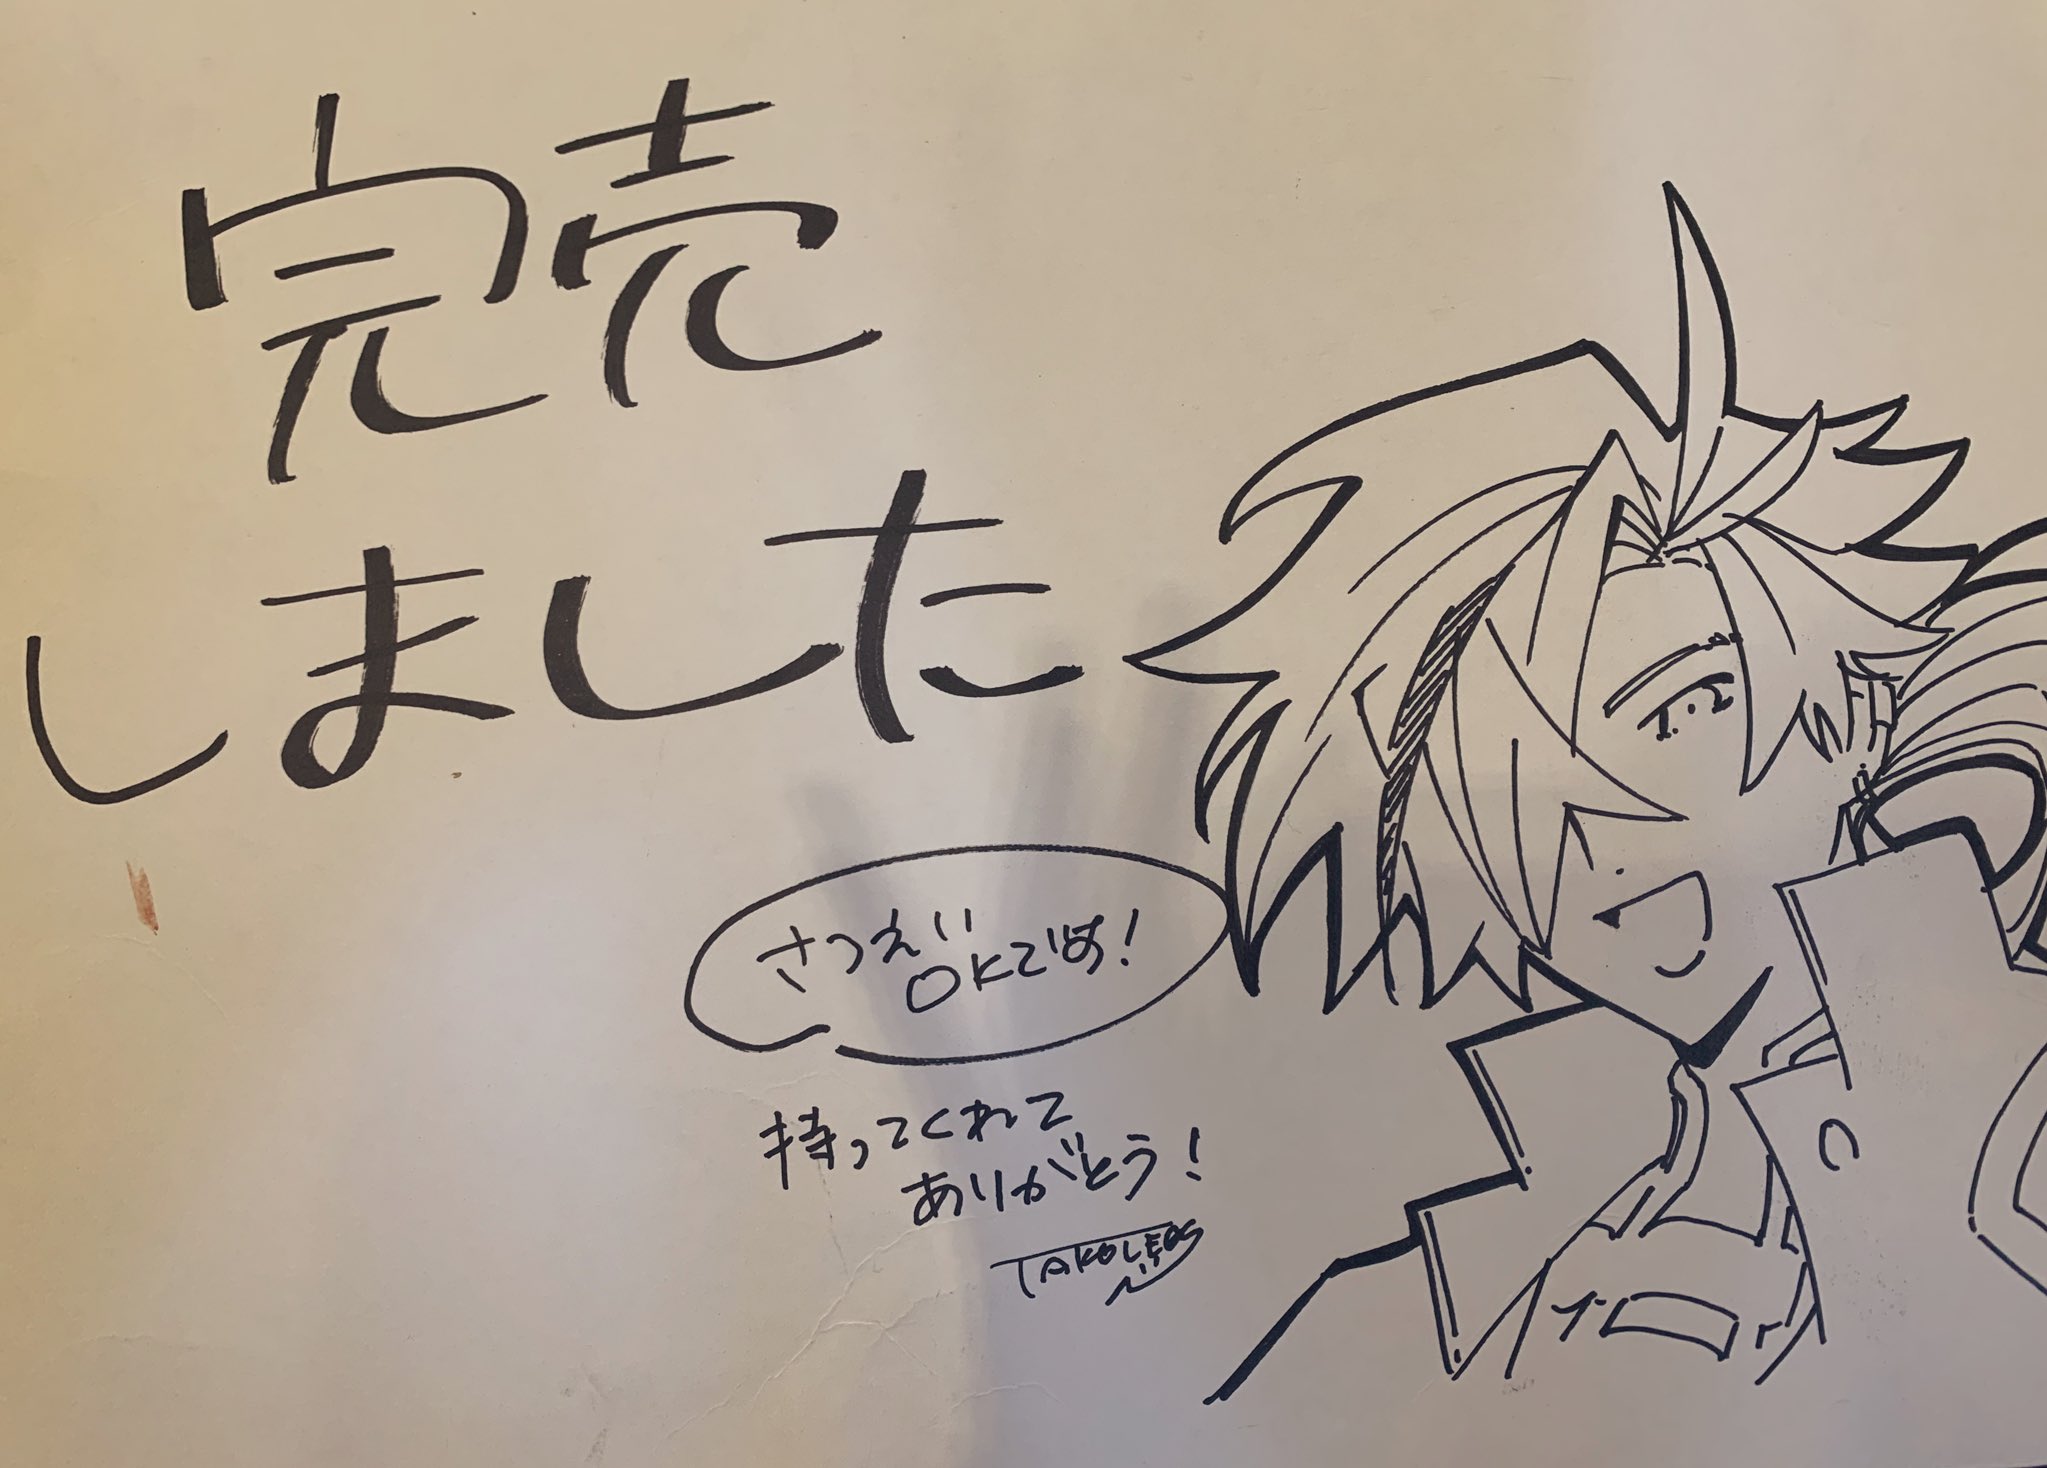 完売
しました
さつえい
OKです!
持ってくれて
ありがとう!
TAKOLEGS